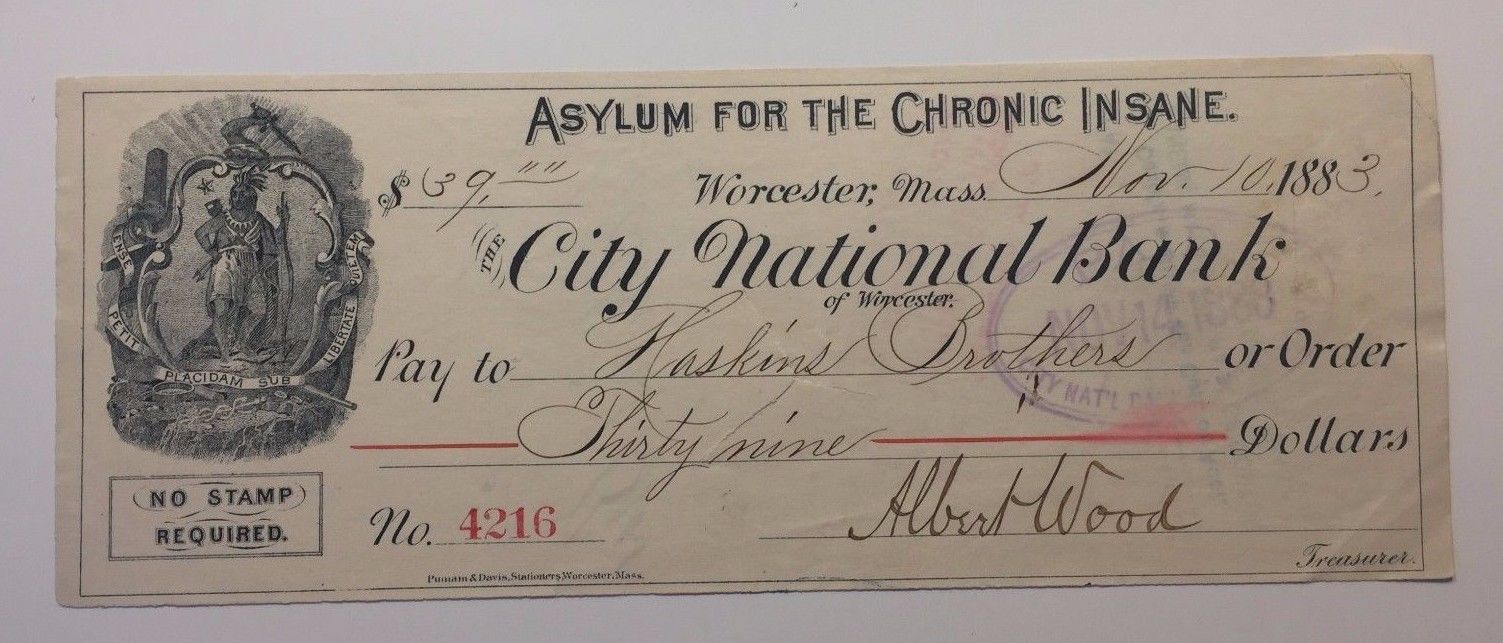 ASYLUM FOR THE CHRONIC INSANE.
$ 39. "" Worcester, Mass. Nov. 10, 1883.
THE City National Bank
of Worcester.
Pay to Haskins Brothers or Order
Thirty nine Dollars
No. 4216 Albert Wood
Treasurer.
ENSE PETIT PLACIDAM SUB LIBERTATE QUIETEM
NO STAMP
REQUIRED.
Putnam & Davis, Stationers, Worcester, Mass.
NOV 14 1883
NAT'L